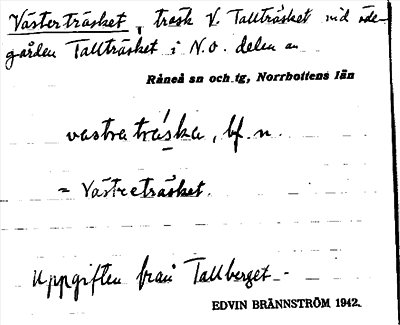 Västerträsket, träsk V. Tallträsket vid öde-
gården Tallträsket i N.O. delen av
Råneå sn och tg, Norrbottens län
vastra tráska, bf. n.
= Västreträsket.
Uppgiften från Tallberget -
EDVIN BRÄNNSTRÖM 1942.